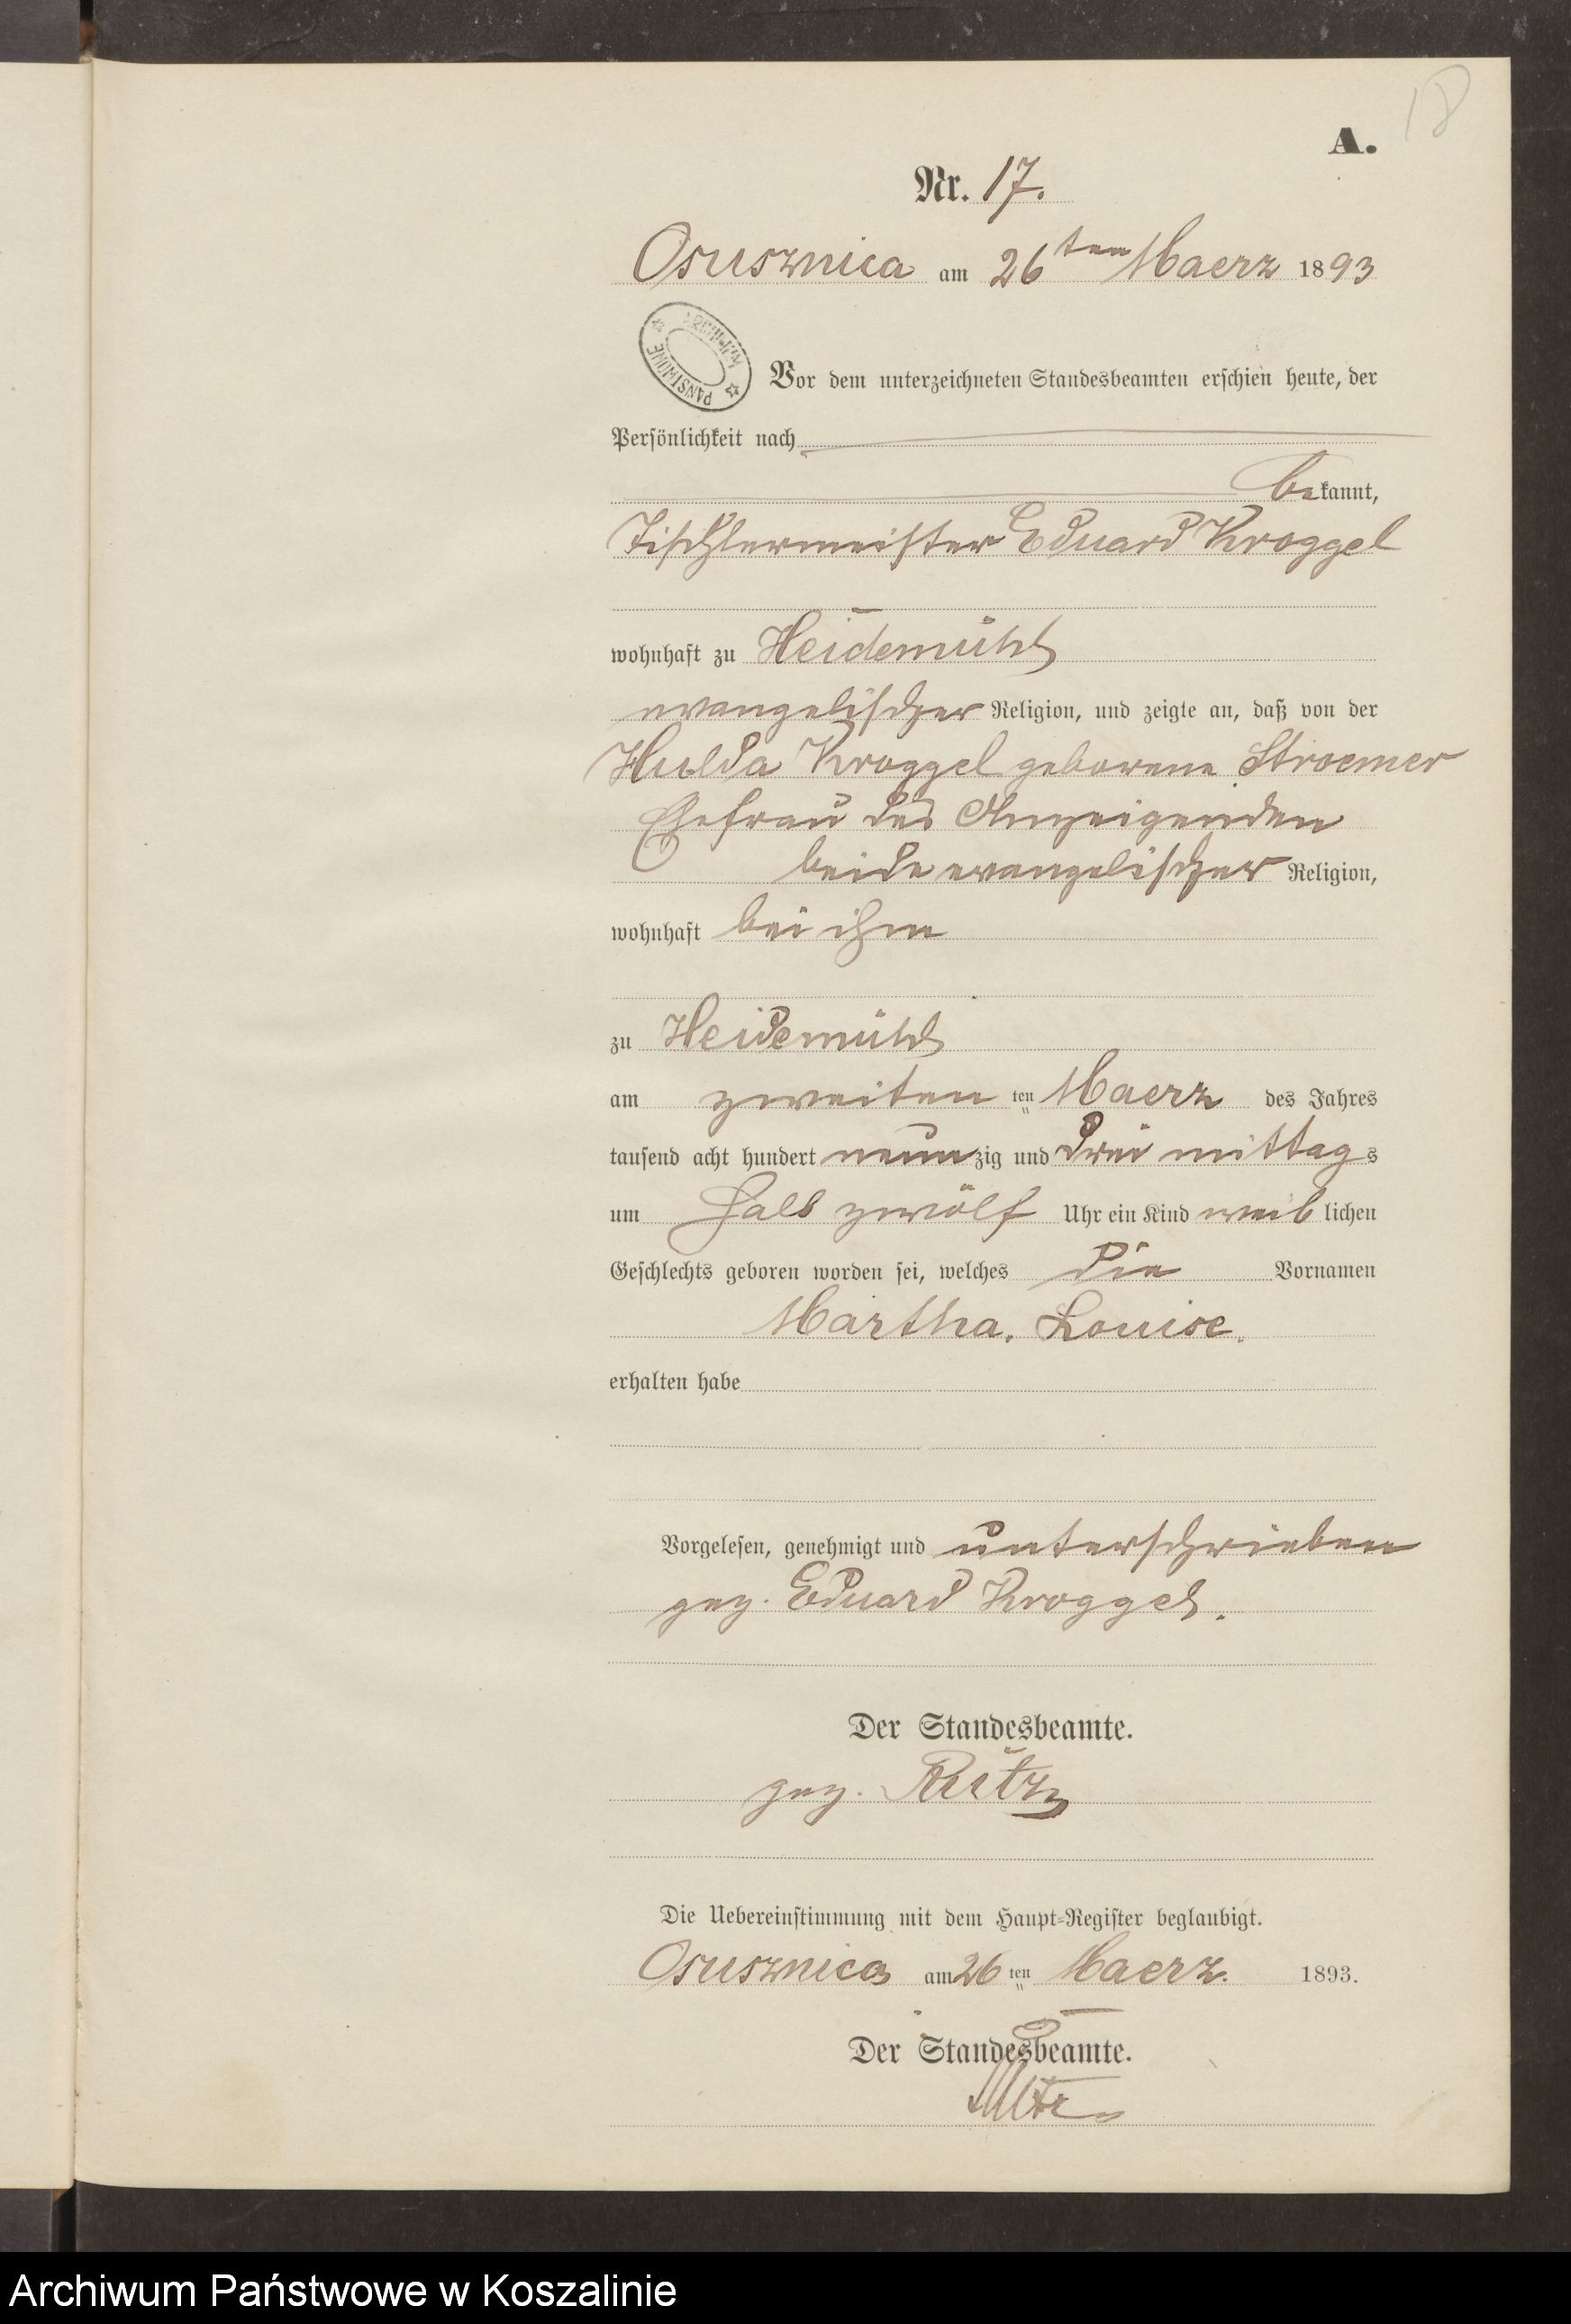 18
A.
Nr. 17.
Osusznica am 26ten Maerz 1893
ARCHIWUM PAŃSTWOWE
Vor dem unterzeichneten Standesbeamten erschien heute, der
Persönlichkeit nach
bekannt,
Tischlermeister Eduard Kroggel
wohnhaft zu Heidemühl
evangelischer Religion, und zeigte an, daß von der
Hulda Kroggel geborene Stroemer
Ehefrau des Anzeigenden
beide evangelischer Religion,
wohnhaft bei ihm
zu Heidemühl
am zweiten ten Maerz des Jahres
tausend acht hundert neunzig und drei mittags
um halb zwölf Uhr ein Kind weiblichen
Geschlechts geboren worden sei, welches die Vornamen
Martha. Louise.
erhalten habe
Vorgelesen, genehmigt und unterschrieben
gez. Eduard Kroggel.
Der Standesbeamte.
gez.
Die Uebereinstimmung mit dem Haupt-Register beglaubigt.
Osusznica am 26 ten Maerz. 1893.
Der Standesbeamte.
Archiwum Państwowe w Koszalinie